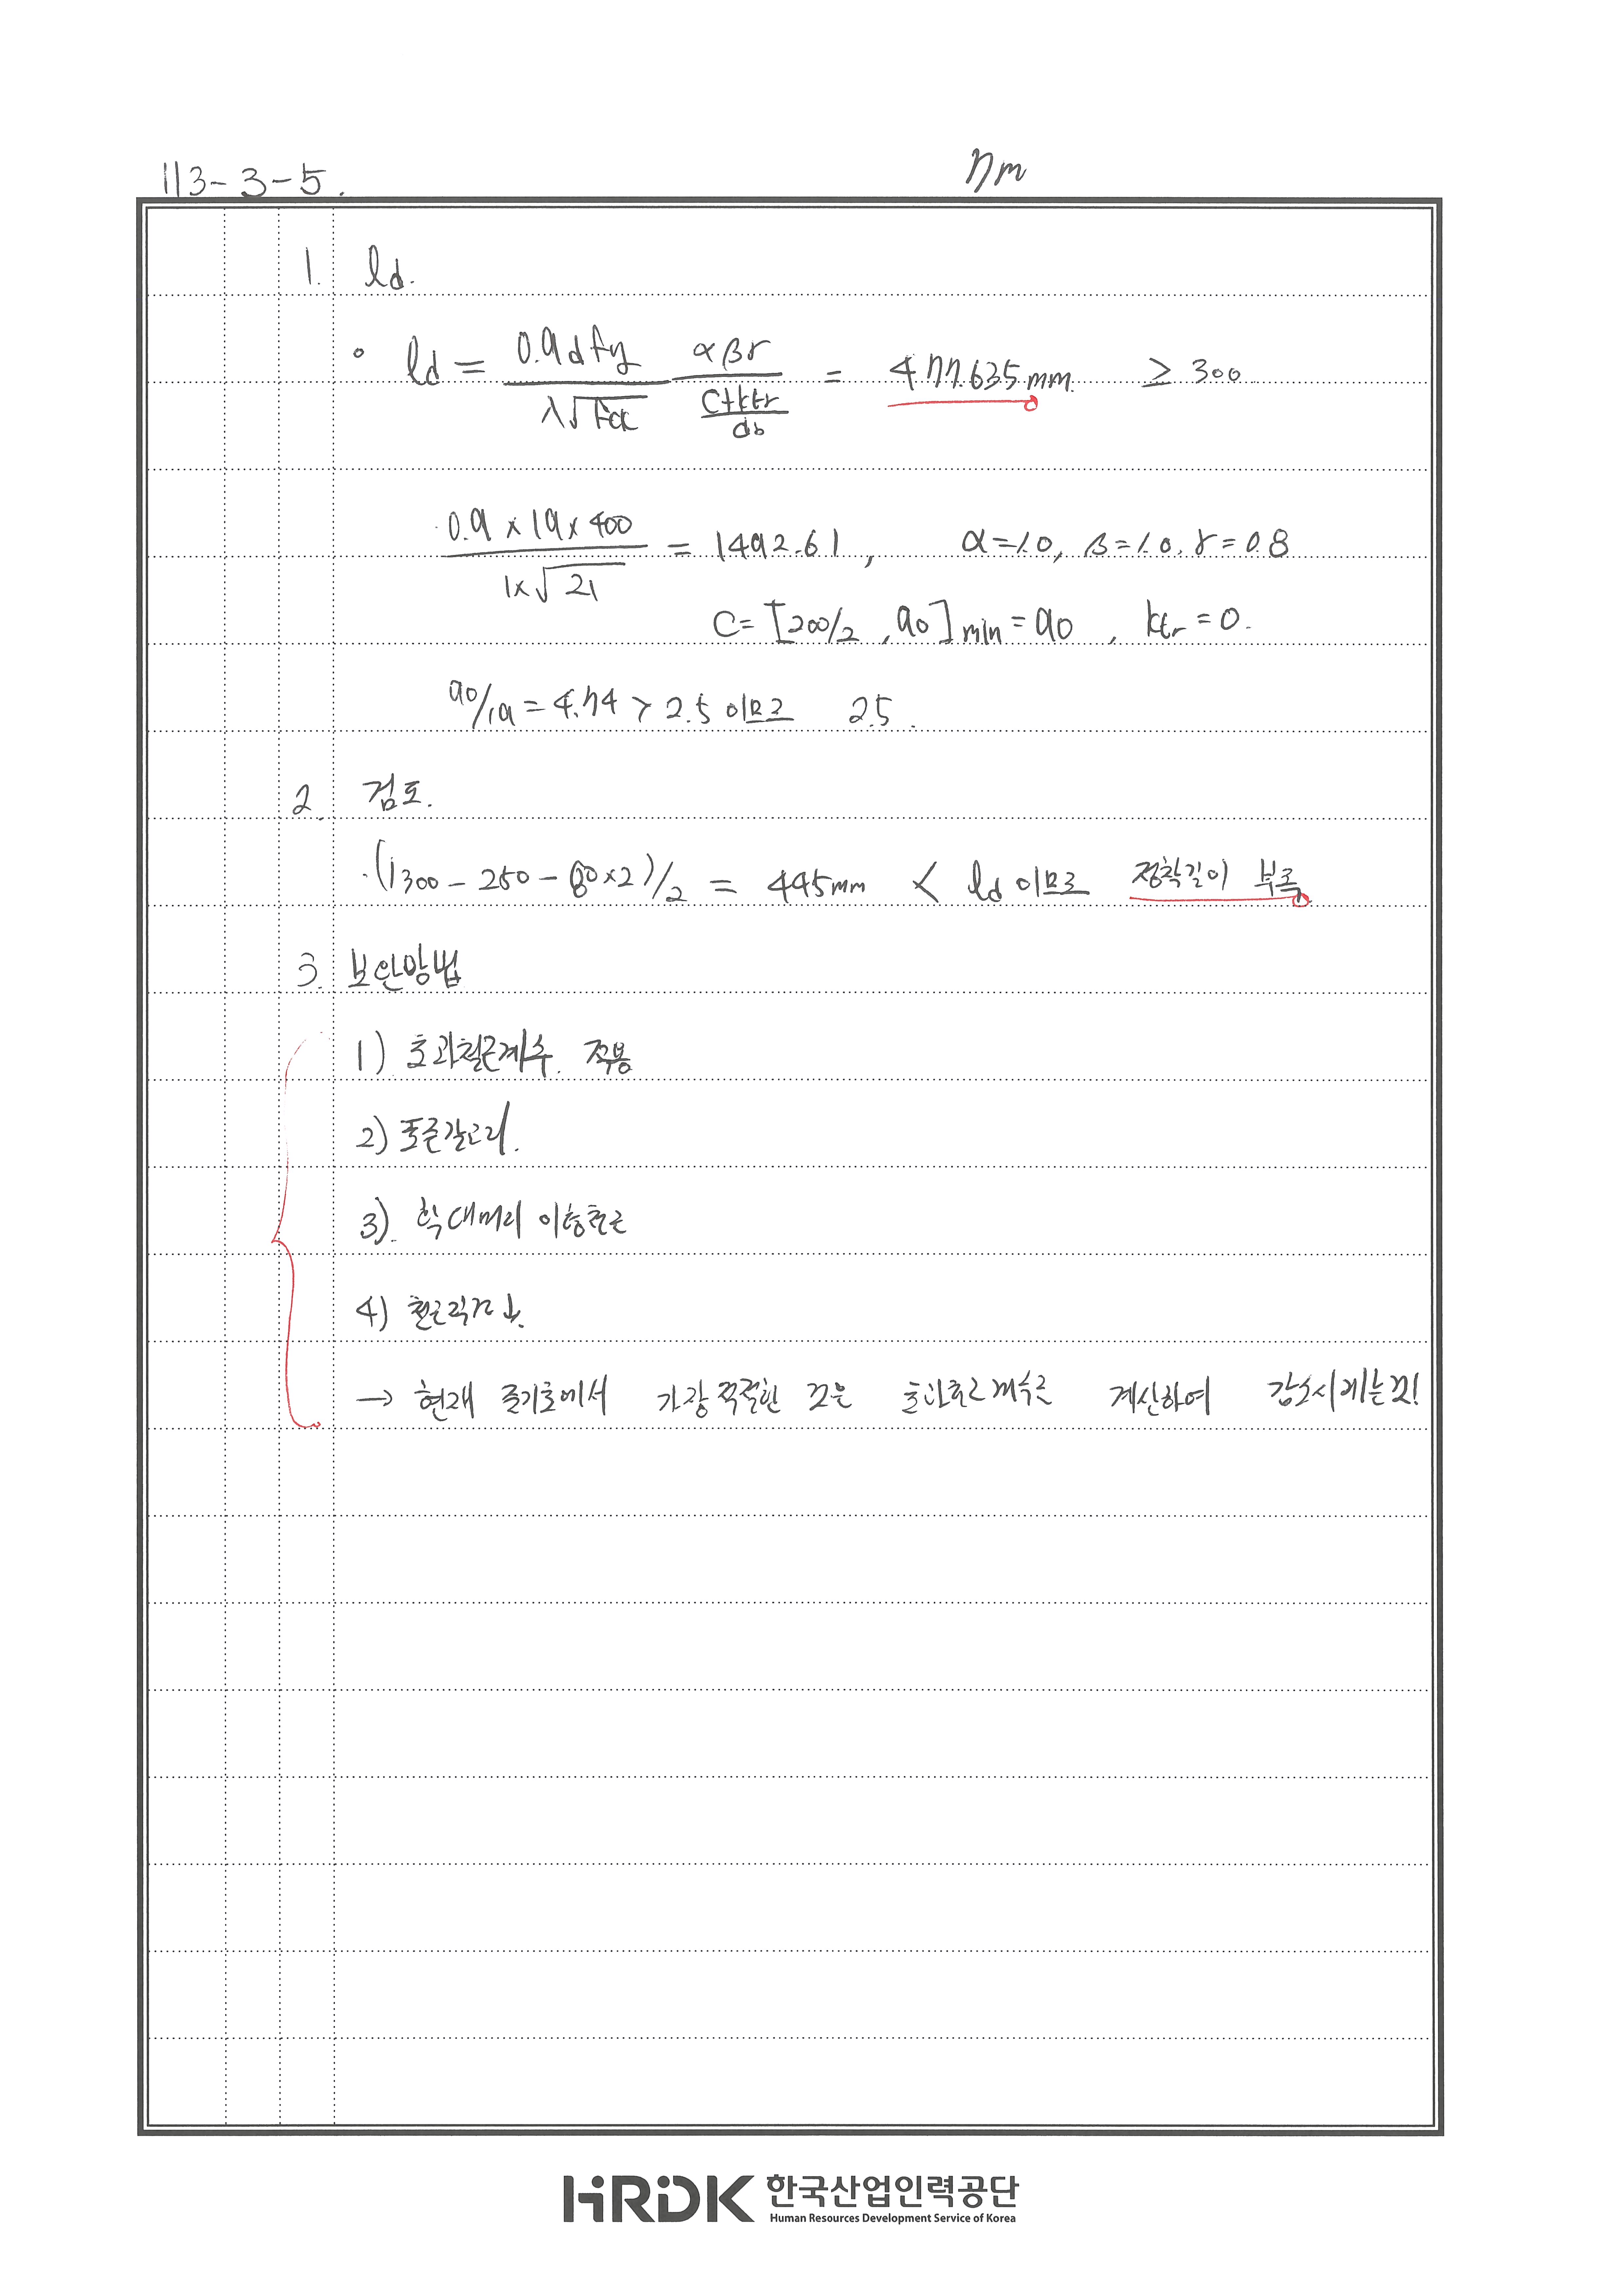 113-3-5.
7m
1. ld.
∘ ld = 0.9dfy / λ√fck αβγ / (C+ktr / db) = 477.635mm ≥ 300
0.9 × 19 × 400 / 1×√21 = 1492.61, α=1.0, β=1.0, γ=0.8
C= [200/2, 90]min = 90, ktr = 0.
90/19 = 4.74 > 2.5 이므로 2.5.
2. 검토.
·(1300 - 250 - 80×2)/2 = 445mm < ld 이므로 정착길이 부족
3. 보완방법
1) 초과철근계수. 적용
2) 표준갈고리.
3). 확대머리 이형철근
4) 철근직경↓.
→ 현재 줄기초에서 가장 적절한 것은 초과철근계수를 계산하여 감소시키는것!
HRDK 한국산업인력공단
Human Resources Development Service of Korea